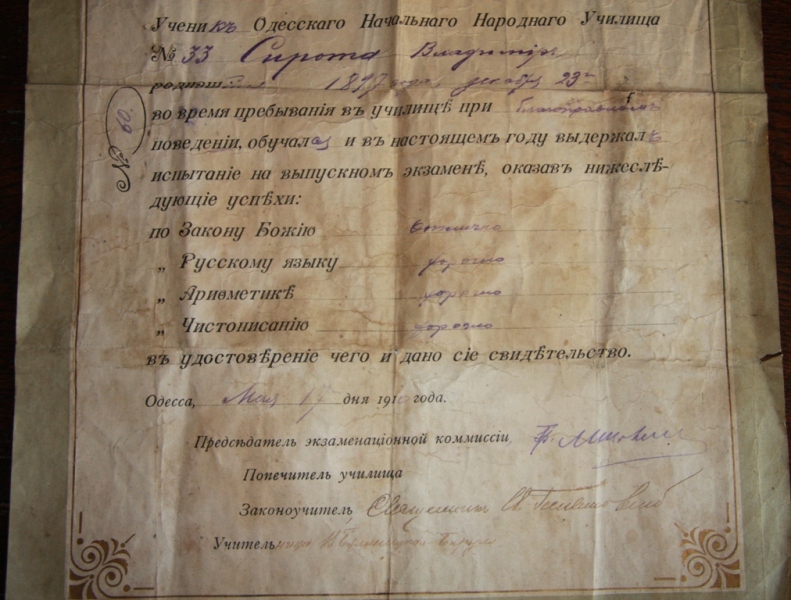 Ученикъ Одесскаго Начальнаго Народнаго Училища
№ 33 Сирота Владиміръ
родивш 1897 года, декабря 23
№ 60.
во время пребыванія въ училищѣ при благонравномъ
поведеніи, обучался и въ настоящемъ году выдержалъ
испытаніе на выпускномъ экзаменѣ, оказавъ нижеслѣ-
дующіе успѣхи:
по Закону Божію отлично
„ Русскому языку хорошо
„ Ариѳметикѣ хорошо
„ Чистописанію хорошо
въ удостовѣреніе чего и дано сіе свидѣтельство.
Одесса, Мая 17 дня 1910 года.
Предсѣдатель экзаменаціонной коммиссіи
Попечитель училища
Законоучитель Священникъ
Учительница